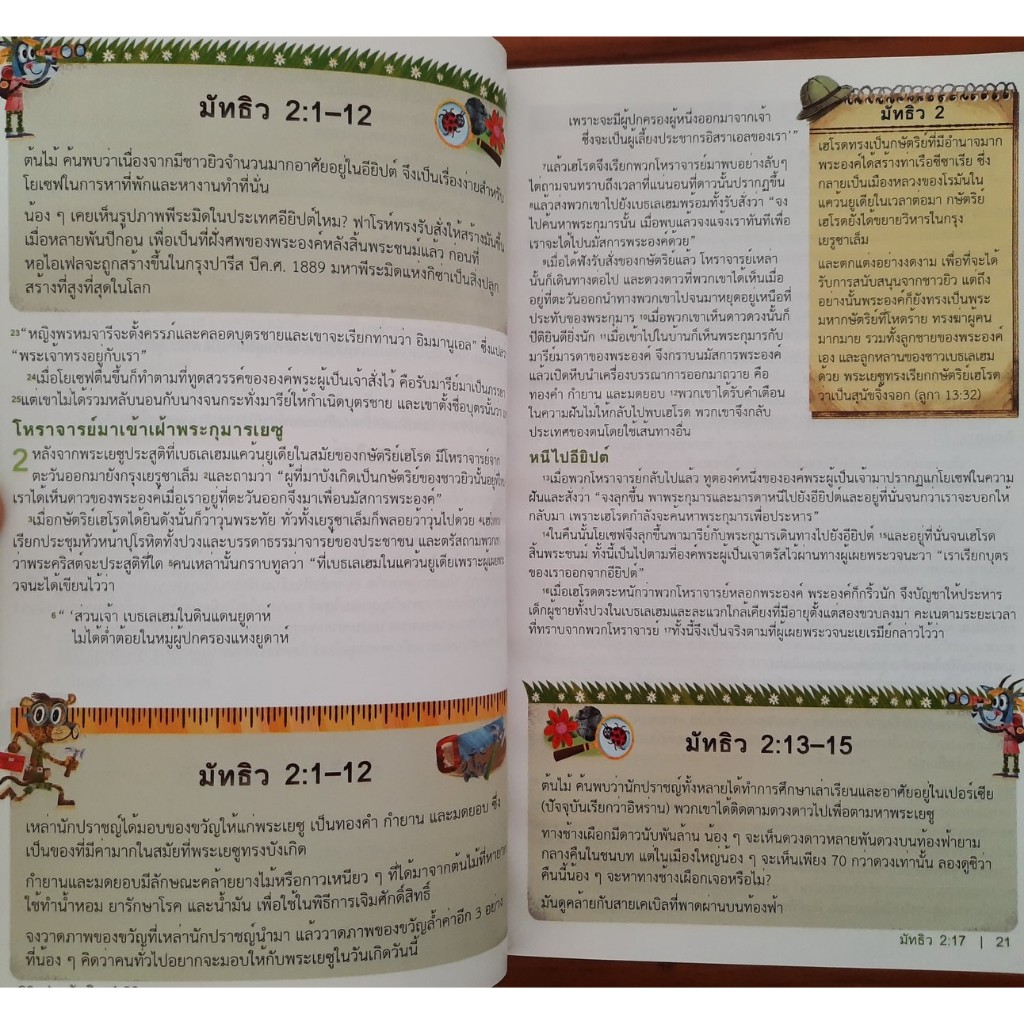 มัทธิว 2:1–12
ต้นไม้ ค้นพบว่าเนื่องจากมีชาวยิวจำนวนมากอาศัยอยู่ในอียิปต์ จึงเป็นเรื่องง่ายสำหรับ
โยเซฟในการหาที่พักและหางานทำที่นั่น
น้อง ๆ เคยเห็นรูปภาพพีระมิดในประเทศอียิปต์ไหม? ฟาโรห์ทรงรับสั่งให้สร้างมันขึ้น
เมื่อหลายพันปีก่อน เพื่อเป็นที่ฝังศพของพระองค์หลังสิ้นพระชนม์แล้ว ก่อนที่
หอไอเฟลจะถูกสร้างขึ้นในกรุงปารีส ปีค.ศ. 1889 มหาพีระมิดแห่งกีซ่าเป็นสิ่งปลูก
สร้างที่สูงที่สุดในโลก
23“หญิงพรหมจารีจะตั้งครรภ์และคลอดบุตรชายและเขาจะเรียกท่านว่า อิมมานูเอล” ซึ่งแปลว่า
“พระเจ้าทรงอยู่กับเรา”
24เมื่อโยเซฟตื่นขึ้นก็ทำตามที่ทูตสวรรค์ขององค์พระผู้เป็นเจ้าสั่งไว้ คือรับมารีย์มาเป็นภรรยา
25แต่เขาไม่ได้ร่วมหลับนอนกับนางจนกระทั่งมารีย์ให้กำเนิดบุตรชาย และเขาตั้งชื่อบุตรนั้นว่า
โหราจารย์มาเข้าเฝ้าพระกุมารเยซู
2 หลังจากพระเยซูประสูติที่เบธเลเฮมแคว้นยูเดียในสมัยของกษัตริย์เฮโรด มีโหราจารย์จาก
ตะวันออกมายังกรุงเยรูซาเล็ม 2และถามว่า “ผู้ที่มาบังเกิดเป็นกษัตริย์ของชาวยิวนั้นอยู่ที่ไหน
เราได้เห็นดาวของพระองค์เมื่อเราอยู่ที่ตะวันออกจึงมาเพื่อนมัสการพระองค์”
3เมื่อกษัตริย์เฮโรดได้ยินดังนั้นก็ว้าวุ่นพระทัย ทั่วทั้งเยรูซาเล็มก็พลอยว้าวุ่นไปด้วย 4เฮโรด
เรียกประชุมหัวหน้าปุโรหิตทั้งปวงและบรรดาธรรมาจารย์ของประชาชน และตรัสถามพวกเขา
ว่าพระคริสต์จะประสูติที่ใด 5คนเหล่านั้นกราบทูลว่า “ที่เบธเลเฮมในแคว้นยูเดียเพราะผู้เผยพระ
วจนะได้เขียนไว้ว่า
6“ ‘ส่วนเจ้า เบธเลเฮมในดินแดนยูดาห์
ไม่ได้ต่ำต้อยในหมู่ผู้ปกครองแห่งยูดาห์
มัทธิว 2:1–12
เหล่านักปราชญ์ได้มอบของขวัญให้แก่พระเยซู เป็นทองคำ กำยาน และมดยอบ ซึ่ง
เป็นของที่มีค่ามากในสมัยที่พระเยซูทรงบังเกิด
กำยานและมดยอบมีลักษณะคล้ายยางไม้หรือกาวเหนียว ๆ ที่ได้มาจากต้นไม้ที่หายาก
ใช้ทำน้ำหอม ยารักษาโรค และน้ำมัน เพื่อใช้ในพิธีการเจิมศักดิ์สิทธิ์
จงวาดภาพของขวัญที่เหล่านักปราชญ์นำมา แล้ววาดภาพของขวัญล้ำค่าอีก 3 อย่าง
ที่น้อง ๆ คิดว่าคนทั่วไปอยากจะมอบให้กับพระเยซูในวันเกิดวันนี้
เพราะจะมีผู้ปกครองผู้หนึ่งออกมาจากเจ้า
ซึ่งจะเป็นผู้เลี้ยงประชากรอิสราเอลของเรา’”
7แล้วเฮโรดจึงเรียกพวกโหราจารย์มาพบอย่างลับๆ
ไต่ถามจนทราบถึงเวลาที่แน่นอนที่ดาวนั้นปรากฏขึ้น
8แล้วส่งพวกเขาไปยังเบธเลเฮมพร้อมทั้งรับสั่งว่า “จง
ไปค้นหาพระกุมารนั้น เมื่อพบแล้วจงแจ้งเราทันทีเพื่อ
เราจะได้ไปนมัสการพระองค์ด้วย”
9เมื่อได้ฟังรับสั่งของกษัตริย์แล้ว โหราจารย์เหล่า
นั้นก็เดินทางต่อไป และดวงดาวที่พวกเขาได้เห็นเมื่อ
อยู่ที่ตะวันออกนำทางพวกเขาไปจนมาหยุดอยู่เหนือที่
ประทับของพระกุมาร 10เมื่อพวกเขาเห็นดาวดวงนั้นก็
ปีติยินดียิ่งนัก 11เมื่อเข้าไปในบ้านก็เห็นพระกุมารกับ
มารีย์มารดาของพระองค์ จึงกราบนมัสการพระองค์
แล้วเปิดหีบนำเครื่องบรรณาการออกมาถวาย คือ
ทองคำ กำยาน และมดยอบ 12พวกเขาได้รับคำเตือน
ในความฝันไม่ให้กลับไปพบเฮโรด พวกเขาจึงกลับ
ประเทศของตนโดยใช้เส้นทางอื่น
มัทธิว 2
เฮโรดทรงเป็นกษัตริย์ที่มีอำนาจมาก
พระองค์ได้สร้างท่าเรือซีซาเรีย ซึ่ง
กลายเป็นเมืองหลวงของโรมันใน
แคว้นยูเดียในเวลาต่อมา กษัตริย์
เฮโรดยังได้ขยายวิหารในกรุง
เยรูซาเล็ม
และตกแต่งอย่างงดงาม เพื่อที่จะได้
รับการสนับสนุนจากชาวยิว แต่ถึง
อย่างนั้นพระองค์ก็ยังทรงเป็นพระ
มหากษัตริย์ที่โหดร้าย ทรงฆ่าผู้คน
มากมาย รวมทั้งลูกชายของพระองค์
เอง และลูกหลานของชาวเบธเลเฮม
ด้วย พระเยซูทรงเรียกกษัตริย์เฮโรด
ว่าเป็นสุนัขจิ้งจอก (ลูกา 13:32)
หนีไปอียิปต์
13เมื่อพวกโหราจารย์กลับไปแล้ว ทูตองค์หนึ่งขององค์พระผู้เป็นเจ้ามาปรากฏแก่โยเซฟในความ
ฝันและสั่งว่า “จงลุกขึ้น พาพระกุมารและมารดาหนีไปยังอียิปต์และอยู่ที่นั่นจนกว่าเราจะบอกให้
กลับมา เพราะเฮโรดกำลังจะค้นหาพระกุมารเพื่อประหาร”
14ในคืนนั้นโยเซฟจึงลุกขึ้นพามารีย์กับพระกุมารเดินทางไปยังอียิปต์ 15และอยู่ที่นั่นจนเฮโรด
สิ้นพระชนม์ ทั้งนี้เป็นไปตามที่องค์พระผู้เป็นเจ้าตรัสไว้ผ่านทางผู้เผยพระวจนะว่า “เราเรียกบุตร
ของเราออกจากอียิปต์”
16เมื่อเฮโรดตระหนักว่าพวกโหราจารย์หลอกพระองค์ พระองค์ก็กริ้วนัก จึงบัญชาให้ประหาร
เด็กผู้ชายทั้งปวงในเบธเลเฮมและละแวกใกล้เคียงที่มีอายุตั้งแต่สองขวบลงมา คะเนตามระยะเวลา
ที่ทราบจากพวกโหราจารย์ 17ทั้งนี้จึงเป็นจริงตามที่ผู้เผยพระวจนะเยเรมีย์กล่าวไว้ว่า
มัทธิว 2:13–15
ต้นไม้ ค้นพบว่านักปราชญ์ทั้งหลายได้ทำการศึกษาเล่าเรียนและอาศัยอยู่ในเปอร์เซีย
(ปัจจุบันเรียกว่าอิหร่าน) พวกเขาได้ติดตามดวงดาวไปเพื่อตามหาพระเยซู
ทางช้างเผือกมีดาวนับพันล้าน น้อง ๆ จะเห็นดวงดาวหลายพันดวงบนท้องฟ้ายาม
กลางคืนในชนบท แต่ในเมืองใหญ่น้อง ๆ จะเห็นเพียง 70 กว่าดวงเท่านั้น ลองดูซิว่า
คืนนี้น้อง ๆ จะหาทางช้างเผือกเจอหรือไม่?
มันดูคล้ายกับสายเคเบิลที่พาดผ่านบนท้องฟ้า
มัทธิว 2:17 | 21